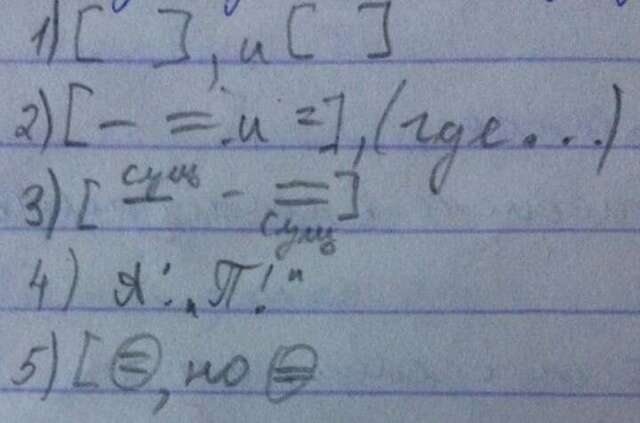 1) [ ], и [ ]
2) [– =.и =], (где...)
3) [сущ – = сущ]
4) А: „П!"
5) [=, но =